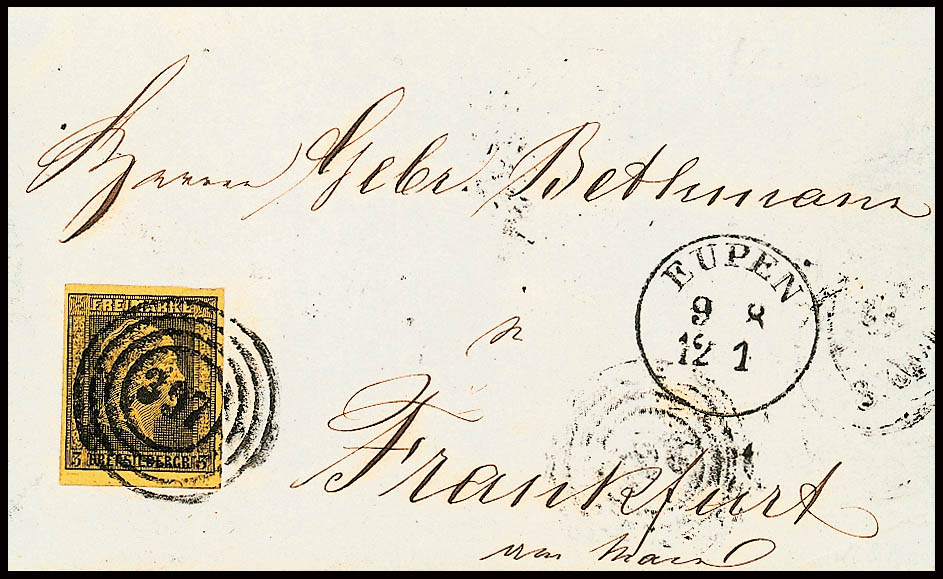 Herren Gebr. Bethmann
EUPEN
9 8
12 1
FREIMARKE
3 SILBERGR. 3
Frankfurt
am Main